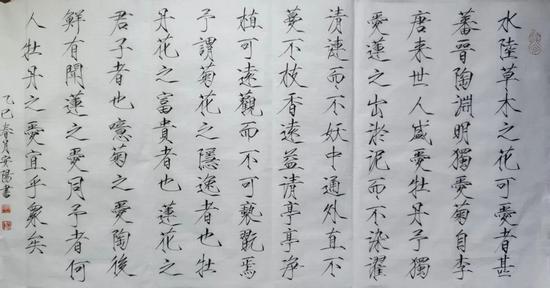 水陸草木之花可愛者甚
蕃晉陶淵明獨愛菊自李
唐来世人盛愛牡丹予獨
愛蓮之出淤泥而不染濯
清漣而不妖中通外直不
蔓不枝香遠益清亭亭净
植可遠觀而不可褻翫焉
予謂菊花之隱逸者也牡
丹花之富貴者也蓮花之
君子者也噫菊之愛陶後
鮮有聞蓮之愛同予者何
人牡丹之愛宜乎衆矣
乙巳春月安陽書